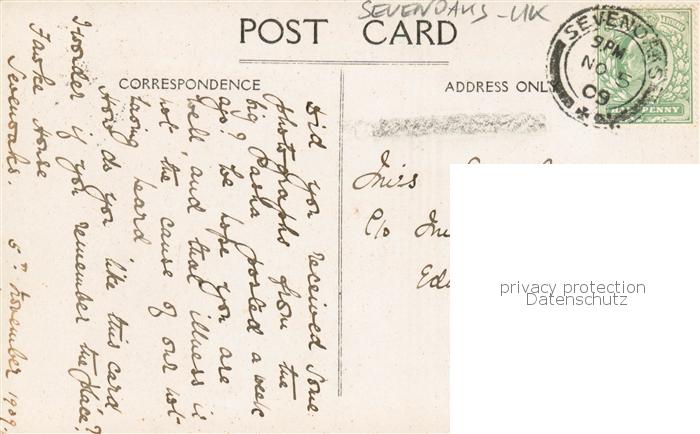 SEVENOAKS - UK
POST CARD
CORRESPONDENCE
ADDRESS ONLY
SEVENOAKS
9 PM
NO 5
09
HALFPENNY
Did you received some
photographs from the
big Pasha posted a week
ago? We hope you are
well, and that illness is
not the cause of our not
having heard
And do you like this card
I wonder if you remember the place?
Fawke House
Sevenoaks.
5th November 1909.
Miss
C/o
privacy protection
Datenschutz